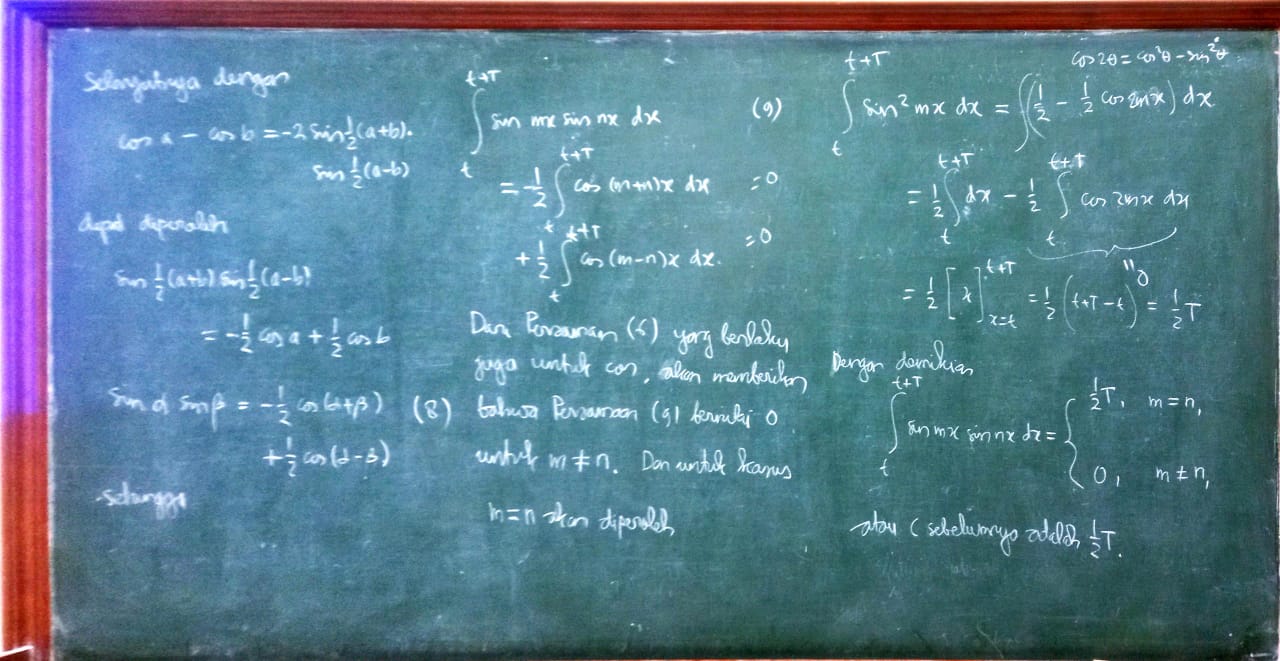 Selanjutnya dengan
cos a − cos b = −2 sin ½(a+b).
sin ½(a−b)
dapat diperoleh
sin ½(a+b) sin ½(a−b)
= −½ cos a + ½ cos b
sin α sin β = −½ cos(α+β) (8)
+ ½ cos(α−β)
sehingga
∫_t^{t+T} sin mx sin nx dx (9)
= −½ ∫_t^{t+T} cos (m+n)x dx = 0
+ ½ ∫_t^{t+T} cos (m−n)x dx. = 0
Dari Persamaan (6) yang berlaku
juga untuk cos, akan memberikan
bahwa Persamaan (9) bernilai 0
untuk m ≠ n. Dan untuk kasus
m = n akan diperoleh
cos 2θ = cos²θ − sin²θ
∫_t^{t+T} sin² mx dx = ∫(½ − ½ cos 2mx) dx
= ½ ∫_t^{t+T} dx − ½ ∫_t^{t+T} cos 2mx dx
= 0
= ½ [x]_{x=t}^{t+T} = ½ (t+T−t) = ½ T
Dengan demikian
∫_t^{t+T} sin mx sin nx dx = { ½T, m = n,
0, m ≠ n,
atau C sebelumnya adalah ½T.